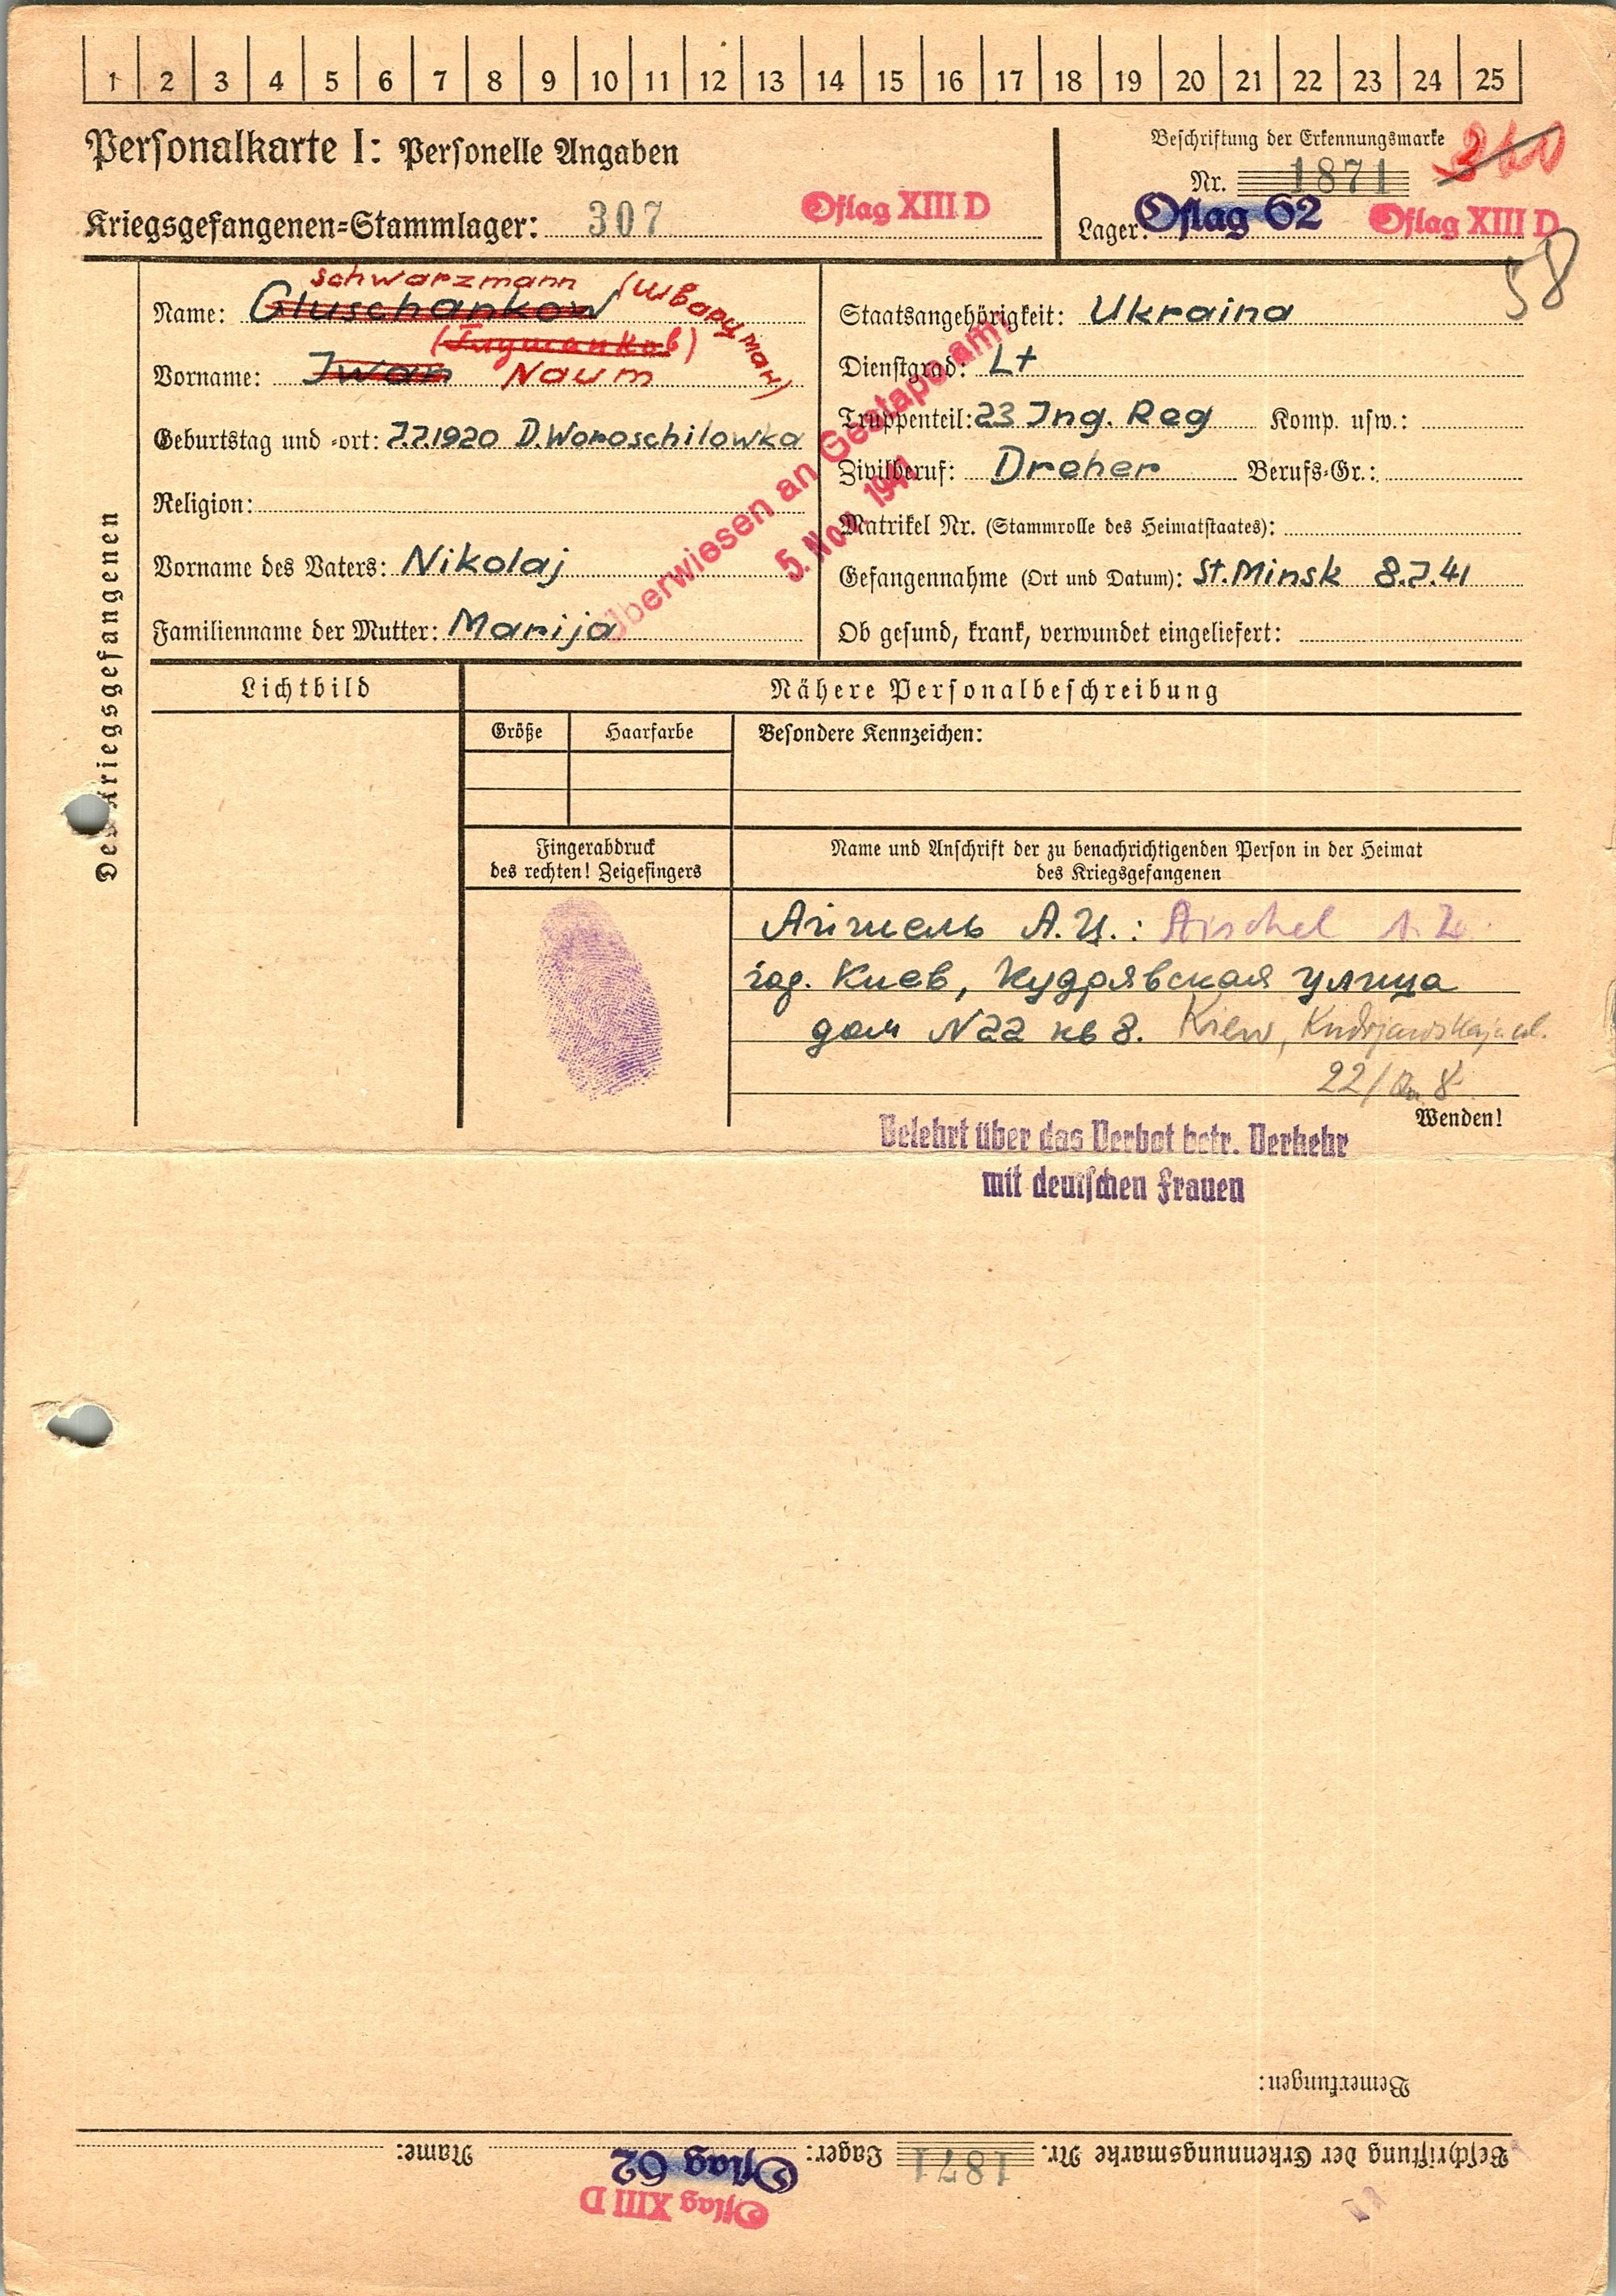 1 2 3 4 5 6 7 8 9 10 11 12 13 14 15 16 17 18 19 20 21 22 23 24 25
Personalkarte I: Personelle Angaben
Beschriftung der Erkennungsmarke
Nr. 1871
Kriegsgefangenen=Stammlager: 307 Oflag XIII D
Lager: Oflag 62 Oflag XIII D
58
Des Kriegsgefangenen
schwarzmann (Шварцман)
Name: Gluschankow
(Глушанков)
Vorname: Iwan Naum
Geburtstag und =ort: 7.7.1920 D.Woroschilowka
Religion:
Vorname des Vaters: Nikolaj
Familienname der Mutter: Marija
Überwiesen an Gestapo am:
5. Nov. 1941
Staatsangehörigkeit: Ukraina
Dienstgrad: Lt
Truppenteil: 23 Ing. Reg Komp. usw.:
Zivilberuf: Dreher Berufs=Gr.:
Matrikel Nr. (Stammrolle des Heimatstaates):
Gefangennahme (Ort und Datum): St. Minsk 8.7.41
Ob gesund, krank, verwundet eingeliefert:
Lichtbild
Nähere Personalbeschreibung
Größe Haarfarbe Besondere Kennzeichen:
Fingerabdruck
des rechten! Zeigefingers
Name und Anschrift der zu benachrichtigenden Person in der Heimat
des Kriegsgefangenen
Айшель А.Ц.: Aischel A. Z.
гор. Киев, Кудрявская улица
дом N 22 кв 8. Kiew, Kudrjawskaja ul.
22/ 8
Wenden!
Belehrt über das Verbot betr. Verkehr
mit deutschen Frauen
Bemerkungen:
Beschriftung der Erkennungsmarke Nr. 1871 Lager: Oflag 62 Name:
Oflag XIII D